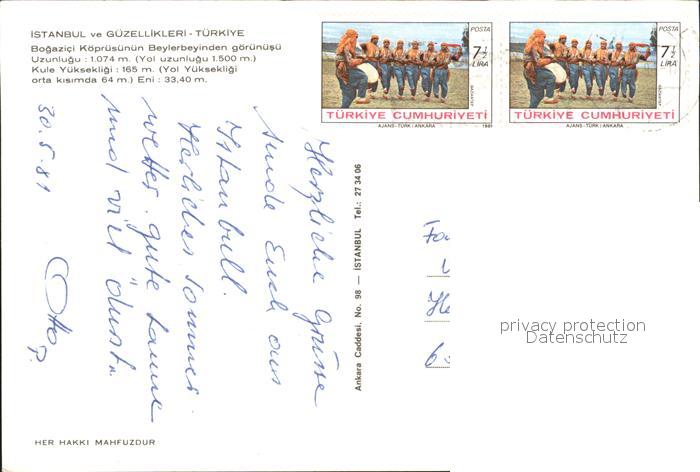 İSTANBUL ve GÜZELLİKLERİ - TÜRKİYE
Boğaziçi Köprüsünün Beylerbeyinden görünüşü
Uzunluğu : 1.074 m. (Yol uzunluğu 1.500 m.)
Kule Yüksekliği : 165 m. (Yol Yüksekliği
orta kısımda 64 m.) Eni : 33,40 m.
POSTA
7½
LİRA
GAZİANTEP
TÜRKİYE CUMHURİYETİ
AJANS-TÜRK / ANKARA
1981
POSTA
7½
LİRA
GAZİANTEP
TÜRKİYE CUMHURİYETİ
AJANS-TÜRK / ANKARA
Herzliche Grüsse
Euch aus
Istanbull.
Herliches Sommer
wetter. gute Laune
und viel Durst.
30.5.81
Otto P.
Ankara Caddesi, No. 98 — İSTANBUL Tel.: 27 34 06
privacy protection
Datenschutz
HER HAKKI MAHFUZDUR